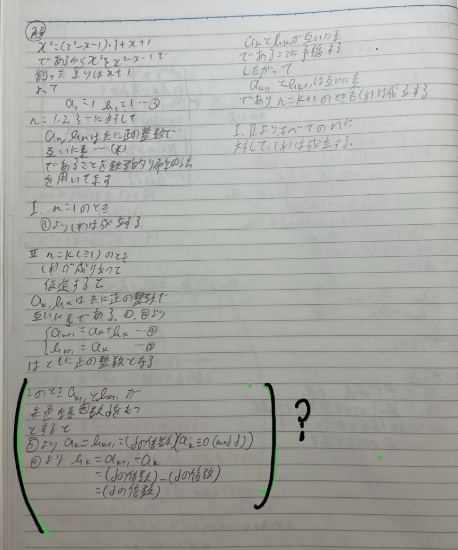 x²=(x²-x-1)・1+x+1
であるからx²をx²-x-1で
割ったあまりはx+1
よって
a₁=1 b₁=1 …③
n=1.2.3…に対して
aₙ,bₙは共に正の整数で
互いに素…(*)
であることを数学的帰納法
を用いて示す
I. n=1のとき
③より(*)は成立する
II n=k(≧1)のとき
(*)が成り立つと
仮定すると
aₖ,bₖは共に正の整数で
互いに素である。①,②より
{aₖ₊₁=aₖ+bₖ …④
{bₖ₊₁=aₖ …⑤
はともに正の整数となる
このときaₖ₊₁とbₖ₊₁が
dをもつ
とすると
⑤より aₖ=bₖ₊₁=(dの倍数)(aₖ≡0(mod d))
④より bₖ=aₖ₊₁-aₖ
=(dの倍数)-(dの倍数)
=(dの倍数)
?
aₖとbₖが互いに素
であることに矛盾する
したがって
aₖ₊₁とbₖ₊₁は互いに素
であり、n=k+1のときも(*)は成立する
I. IIよりすべてのnに
対して、(*)は成立する。